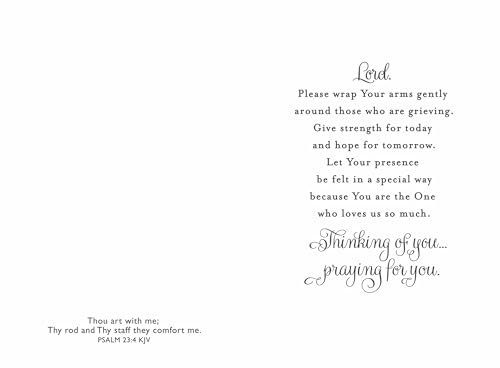 Thou art with me;
Thy rod and Thy staff they comfort me.
PSALM 23:4 KJV
Lord,
Please wrap Your arms gently
around those who are grieving.
Give strength for today
and hope for tomorrow.
Let Your presence
be felt in a special way
because You are the One
who loves us so much.
Thinking of you...
praying for you.